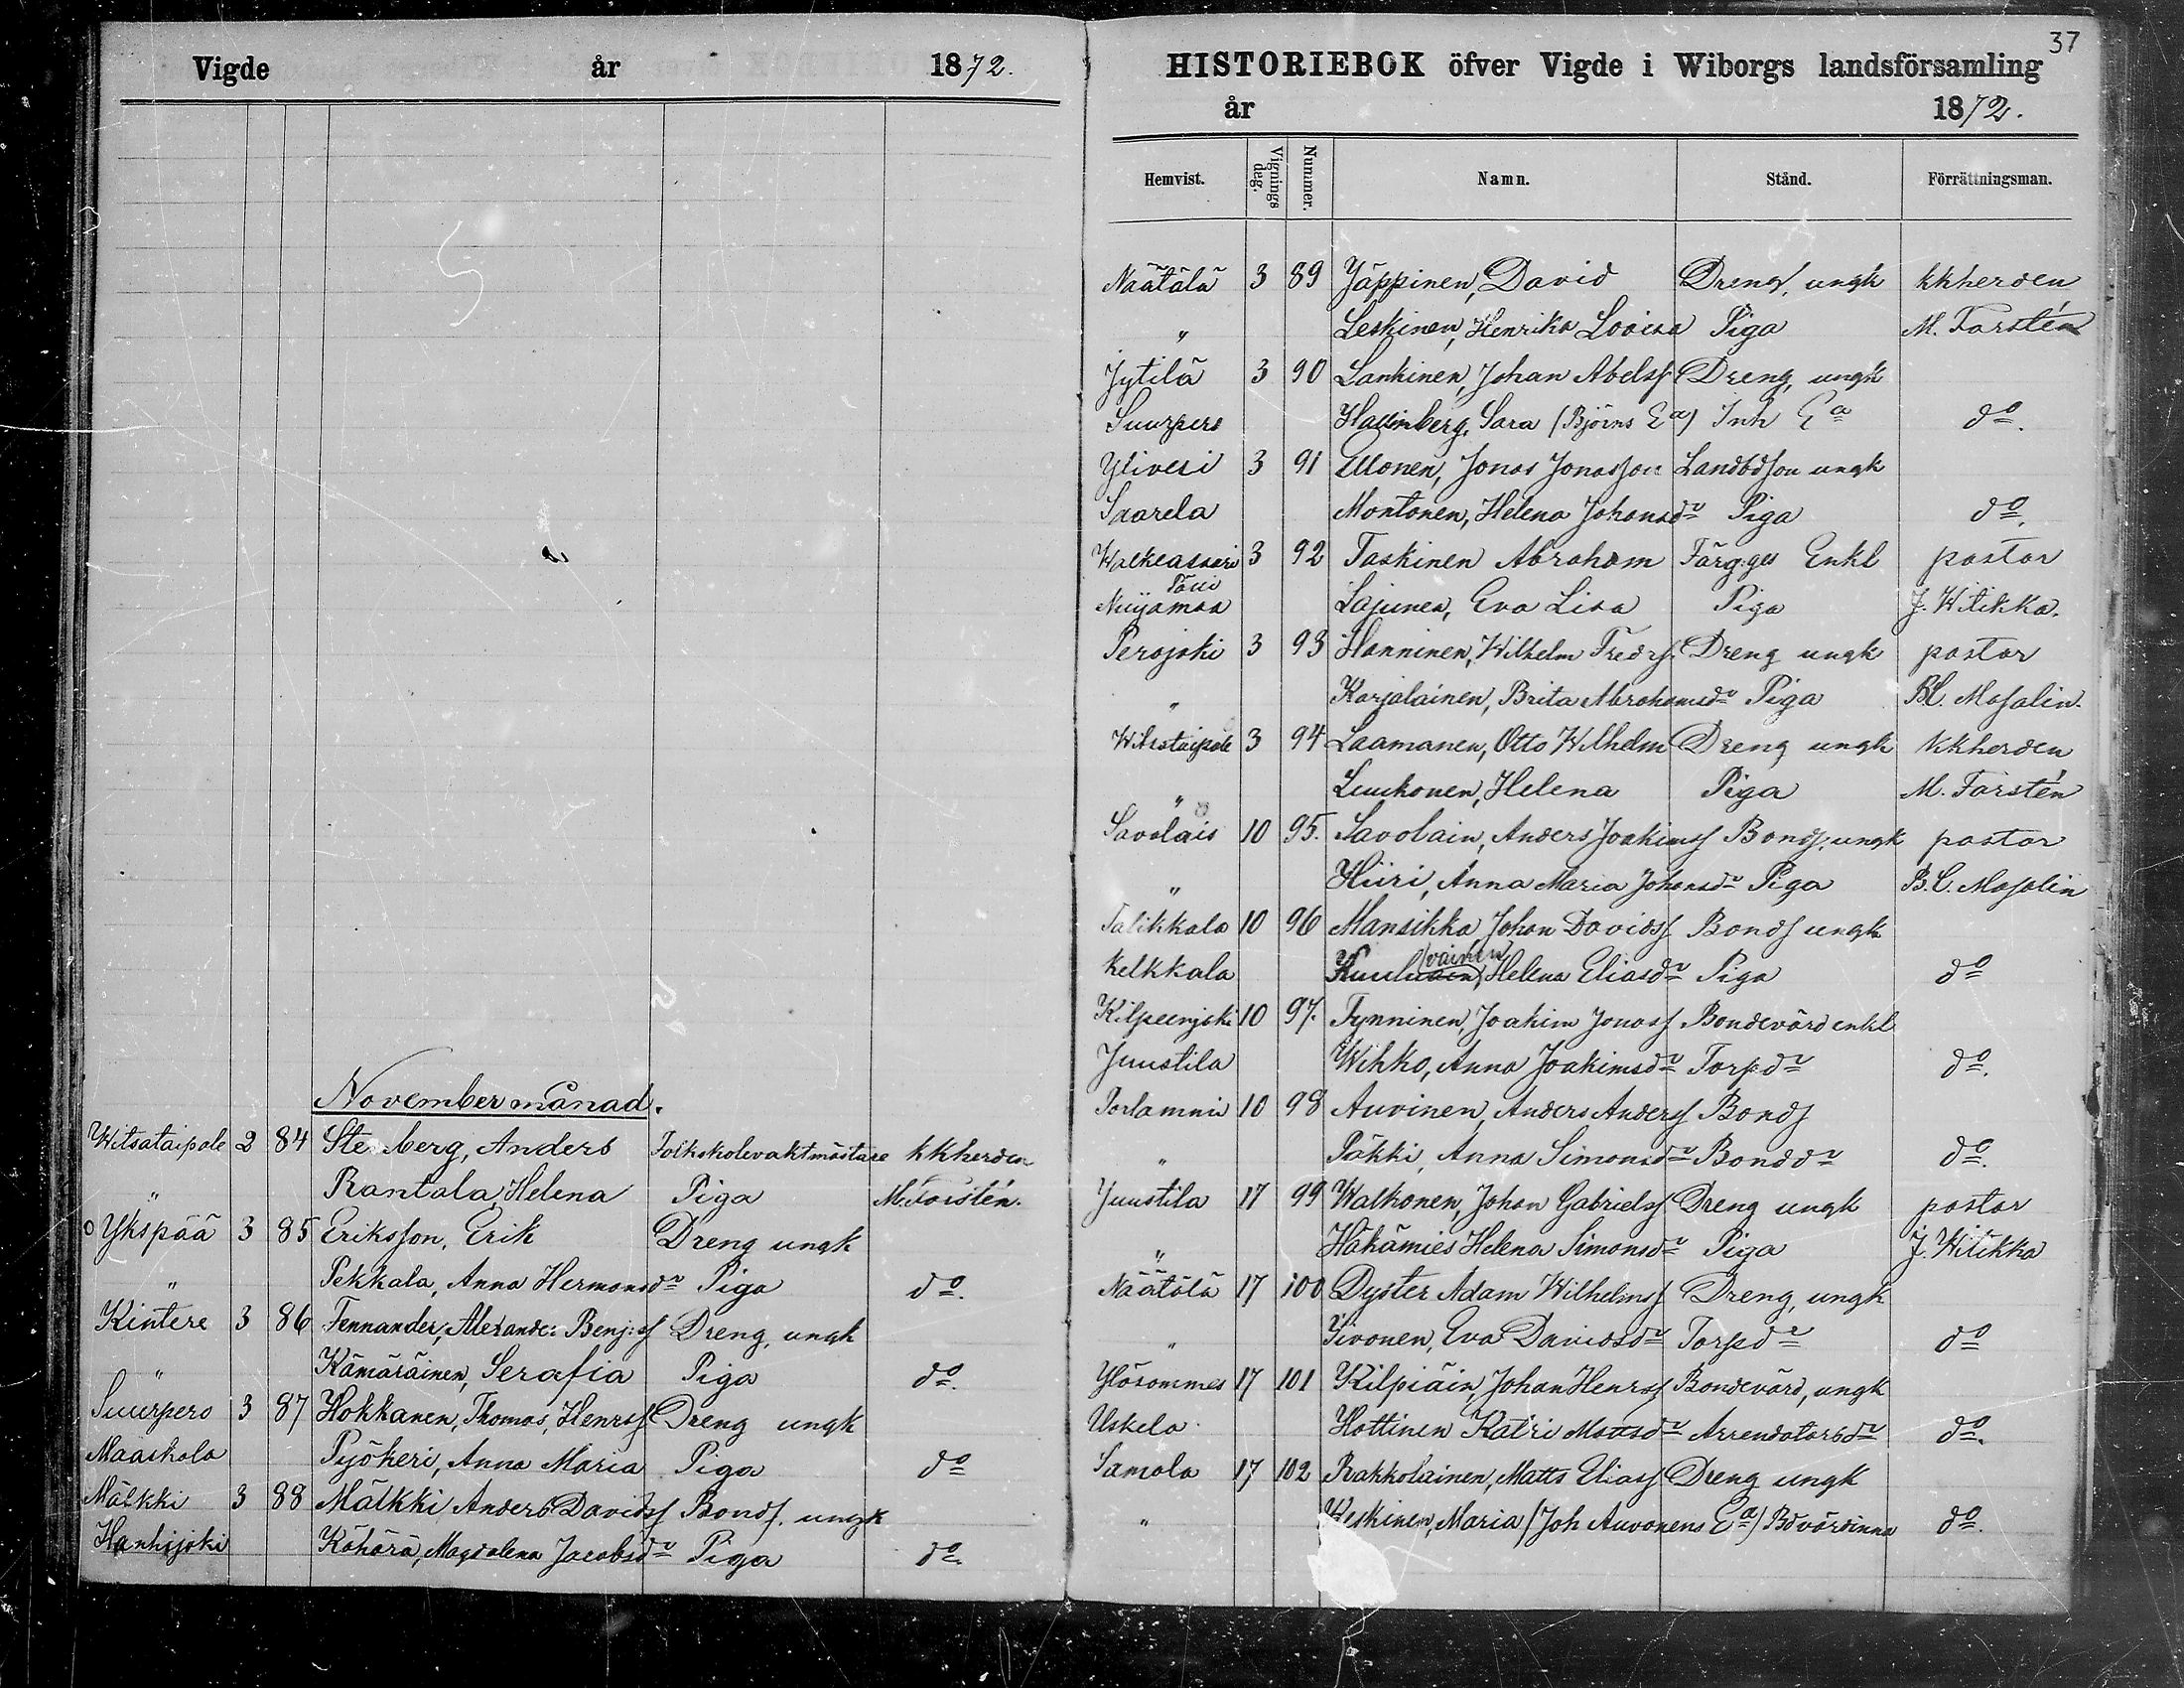 Vigde år 1872.
November månad.
Witsataipale 2 84 Stenberg, Anders Folkskolevaktmästare kkherden
" Rantala, Helena Piga M. Forstén.
o Ykspää 3 85 Eriksson, Erik Dreng ungk
" Pekkala, Anna Hermansdr Piga do.
Kintere 3 86 Fennander, Alexander Benj:sf Dreng, ungk
" Kämäräinen, Serafia Piga do.
Suurpero 3 87 Hokkanen, Thomas, Henrsf Dreng ungk
Maaskola Pyökeri, Anna Maria Piga do
Mälkki 3 88 Mälkki Anders Davidsf Bondf. ungk
Hanhijoki Köhörä, Magdalena Jacobsdr Piga do.
37
HISTORIEBOK öfver Vigde i Wiborgs landsförsamling
år 1872.
Hemvist. Vignings dag. Nummer. Namn. Stånd. Förrättningsman.
Näätälä 3 89 Jäppinen, David Drengf. ungk kkherden
" Leskinen, Henrika Lovisa Piga M. Forstén
Jytilä 3 90 Lankinen, Johan Abelsf Dreng, ungk
Suurpero Sara (Björns Ea) Inh Ea do.
Yliveri 3 91 Ullonen, Jonas Jonasson Landbdson ungk
Saarela Montonen, Helena Johansdr Piga do.
Walkeasaari 3 92 Taskinen Abraham Färg:ges Enkl pastor
Nuijamaa Lajunen, Eva Lisa Piga J. Witikka.
Perojoki 3 93 Hänninen, Wilhelm Fredrsf. Dreng ungk pastor
" Karjalainen, Brita Abrahamsdr Piga B.C. Mosalin.
Witsataipale 3 94 Laamanen, Otto Wilhelm Dreng ungk kkherden
" Luukonen, Helena Piga M. Forstén
Savolais 10 95. Savolain, Anders Joakimsf Bondf. ungk pastor
" Hiiri, Anna Maria Johansdr Piga B.C. Mosalin
Talikkala 10 96 Mansikka Johan Davidsf Bondf ungk
Kelkkala vainen Helena Eliasdr Piga do
Kilpeenjoki 10 97. Tynninen, Joakim Jonasf Bondevärd enkl
Juustila Wihko, Anna Joakimsdr Torpdr do.
Porlammi 10 98 Auvinen, Anders Andersf Bondf
" Päkki, Anna Simonsdr Bonddr do.
Juustila 17 99 Walkonen, Johan Gabrielsf Dreng ungk pastor
" Häkämies Helena Simonsdr Piga J. Witikka
Näätälä 17 100 Dyster Adam Wilhelmsf Dreng, ungk
" Sivonen, Eva Davidsdr Torpdr do
Ylösommes 17 101 Kilpiäin, Johan Henrsf Bondevärd, ungk
Uskela Hottinen Katri Matsdr Arrendatorsdr do.
Samola 17 102 Rakkolainen, Matts Eliasf Dreng ungk
" Keskinen, Maria (Joh Auvonens Ea) Bdvärdinna do.